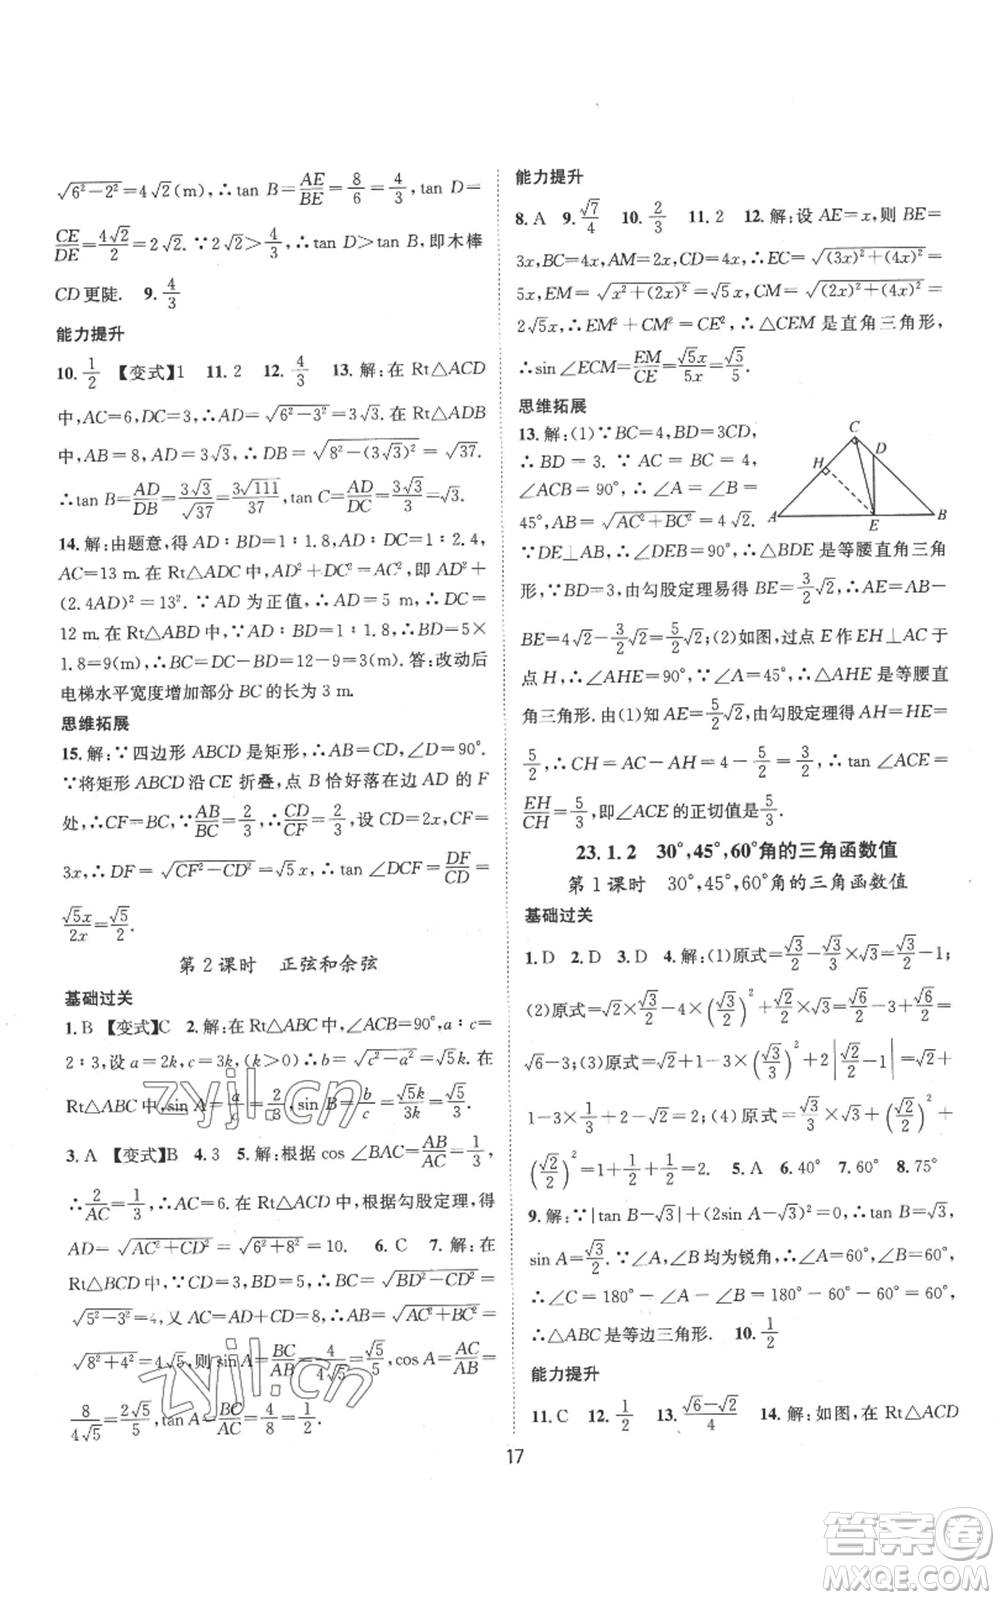 √(6²－2²)＝4√2(m),∴tan B＝AE/BE＝8/6＝4/3,tan D＝
CE/DE＝4√2/2＝2√2.∵2√2＞4/3,∴tan D＞tan B,即木棒
CD更陡. 9. 4/3
能力提升
10. 1/2 【变式】1 11. 2 12. 4/3 13. 解:在Rt△ACD
中,AC＝6,DC＝3,∴AD＝√(6²－3²)＝3√3.在Rt△ADB
中,AB＝8,AD＝3√3,∴DB＝√(8²－(3√3)²)＝√37.
∴tan B＝AD/DB＝3√3/√37＝3√111/37,tan C＝AD/DC＝3√3/3＝√3.
14. 解:由题意,得AD∶BD＝1∶1.8,AD∶DC＝1∶2.4,
AC＝13 m.在Rt△ADC中,AD²＋DC²＝AC²,即AD²＋
(2.4AD)²＝13².∵AD为正值,∴AD＝5 m,∴DC＝
12 m.在Rt△ABD中,∵AD∶BD＝1∶1.8,∴BD＝5×
1.8＝9(m),∴BC＝DC－BD＝12－9＝3(m).答:改动后
电梯水平宽度增加部分BC的长为3 m.
思维拓展
15. 解:∵四边形ABCD是矩形,∴AB＝CD,∠D＝90°.
∵将矩形ABCD沿CE折叠,点B恰好落在边AD的F
处,∴CF＝BC,∵AB/BC＝2/3,∴CD/CF＝2/3,设CD＝2x,CF＝
3x,∴DF＝√(CF²－CD²)＝√5x,∴tan∠DCF＝DF/CD＝
√5x/2x＝√5/2.
第2课时 正弦和余弦
基础过关
1. B 【变式】C 2. 解:在Rt△ABC中,∠ACB＝90°,a∶c＝
2∶3,设a＝2k,c＝3k(k＞0),∴b＝√(c²－a²)＝√5k.在
Rt△ABC中,sin A＝a/c＝2/3,sin B＝b/c＝√5k/3k＝√5/3.
3. A 【变式】B 4. 3 5. 解:根据cos∠BAC＝AB/AC＝1/3,
∴2/AC＝1/3,∴AC＝6.在Rt△ACD中,根据勾股定理,得
AD＝√(AC²＋CD²)＝√(6²＋8²)＝10. 6. C 7. 解:在
Rt△BCD中,∵CD＝3,BD＝5,∴BC＝√(BD²－CD²)＝
√(5²－3²)＝4,又AC＝AD＋CD＝8,∴AB＝√(AC²＋BC²)＝
√(8²＋4²)＝4√5,则sin A＝BC/AB＝4/4√5＝√5/5,cos A＝AC/AB＝
8/4√5＝2√5/5,tan A＝BC/AC＝4/8＝1/2.
能力提升
8. A 9. √7/4 10. 2/3 11. 2 12. 解:设AE＝x,则BE＝
3x,BC＝4x,AM＝2x,CD＝4x,∴EC＝√((3x)²＋(4x)²)＝
5x,EM＝√(x²＋(2x)²)＝√5x,CM＝√((2x)²＋(4x)²)＝
2√5x,∴EM²＋CM²＝CE²,∴△CEM是直角三角形,
∴sin∠ECM＝EM/CE＝√5x/5x＝√5/5.
思维拓展
13. 解:(1)∵BC＝4,BD＝3CD,
∴BD＝3.∵AC＝BC＝4,
∠ACB＝90°,∴∠A＝∠B＝
45°,AB＝√(AC²＋BC²)＝4√2.
C
H
D
A
E
B
∵DE⊥AB,∴∠DEB＝90°,∴△BDE是等腰直角三角
形,∵BD＝3,由勾股定理易得BE＝3/2√2,∴AE＝AB－
BE＝4√2－3/2√2＝5/2√2;(2)如图,过点E作EH⊥AC于
点H,∴∠AHE＝90°,∵∠A＝45°,∴△AHE是等腰直
角三角形.由(1)知AE＝5/2√2,由勾股定理得AH＝HE＝
5/2,∴CH＝AC－AH＝4－5/2＝3/2,∴tan∠ACE＝
EH/CH＝5/3,即∠ACE的正切值是5/3.
23.1.2 30°,45°,60°角的三角函数值
第1课时 30°,45°,60°角的三角函数值
基础过关
1. D 2. D 3. D 4. 解:(1)原式＝√3/2×√3＝√3/2－1;
(2)原式＝2√6×√2/2－4×(√3/2)²＋√2/2×√3＝√6/2－3＋√6/2＝
√6－3;(3)原式＝√2＋1－3×(√3/3)²＋2|√2/2－1|＝√2＋
1－3×1/3＋2－√2＝2;(4)原式＝√3/3×√3＋(√2/2)²＋
(√2/2)²＝1＋1/2＋1/2＝2. 5. A 6. 40° 7. 60° 8. 75°
9. 解:∵|tan B－√3|＋(2sin A－√3)²＝0,∴tan B＝√3,
sin A＝√3/2.∵∠A,∠B均为锐角,∴∠A＝60°,∠B＝60°,
∴∠C＝180°－∠A－∠B＝180°－60°－60°＝60°,
∴△ABC是等边三角形. 10. 1/2
能力提升
11. C 12. 1/2 13. (√6－√2)/4 14. 解:如图,在Rt△ACD
17
zyjl.cn
zyjl.cn
答案圈
MXQE.COM